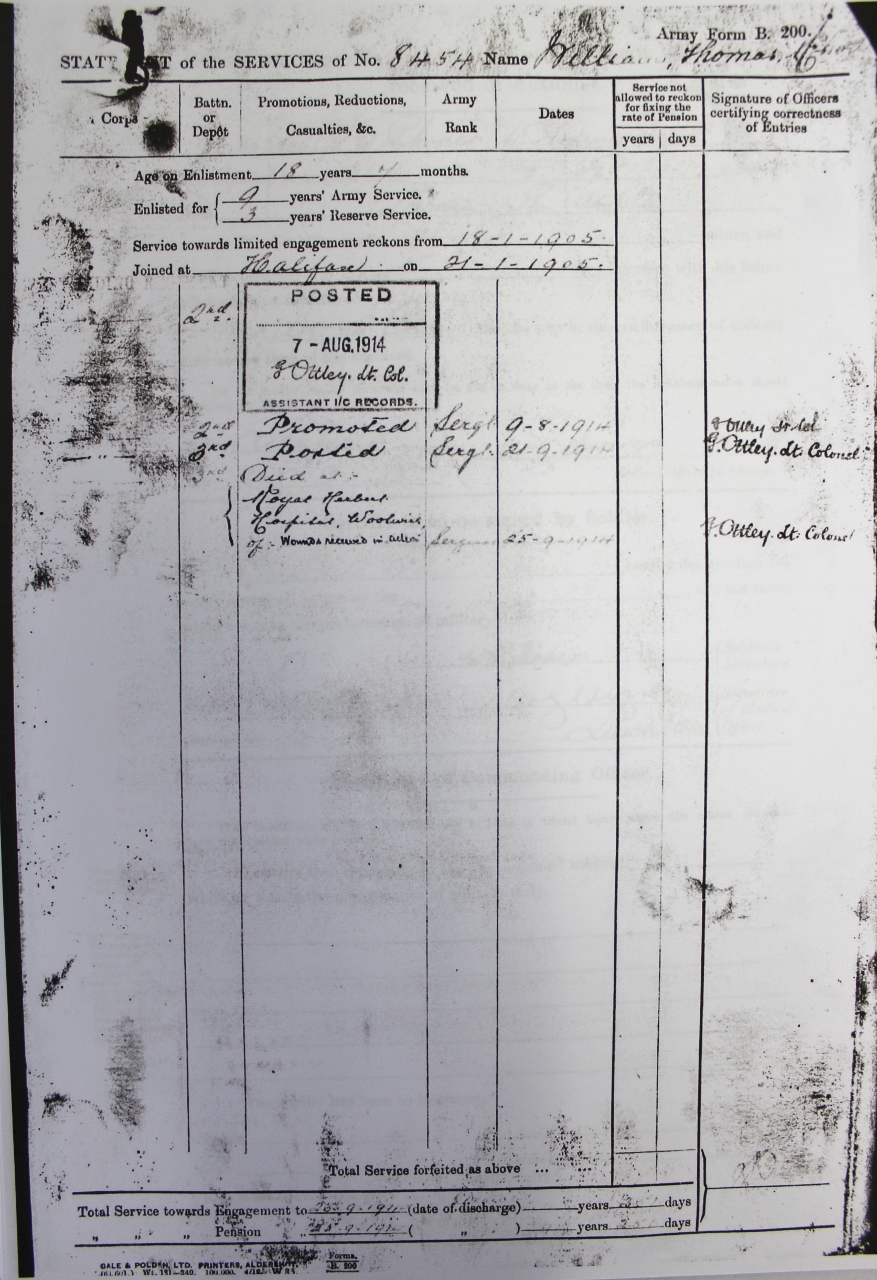 Army Form B. 200.
STAT T of the SERVICES of No. 8454 Name William, Thomas
Corps
Battn. or Depôt
Promotions, Reductions, Casualties, &c.
Army Rank
Dates
Service not allowed to reckon for fixing the rate of Pension
years days
Signature of Officers certifying correctness of Entries
Age on Enlistment 18 years months.
Enlisted for 9 years' Army Service.
3 years' Reserve Service.
Service towards limited engagement reckons from 18-1-1905.
Joined at Halifax on 21-1-1905.
2nd.
POSTED
7 - AUG. 1914
G Ottley. Lt. Col.
ASSISTANT I/C RECORDS.
2nd Promoted Sergt. 9-8-1914 G Ottley Lt Col
3rd Posted Sergt. 21-9-1914 G. Ottley. Lt. Colonel
3rd Died at:-
Royal Herbert
Hospital, Woolwich,
of:- Wounds received in action 25-9-1914 G. Ottley. Lt. Colonel
Total Service forfeited as above ... ...
Total Service towards Engagement to 25-9-191 (date of discharge) years days
„ „ „ Pension „ 25-9-191 ( „ ) years days
GALE & POLDEN, LTD. PRINTERS, ALDERSHOT.
Forms.
B. 200